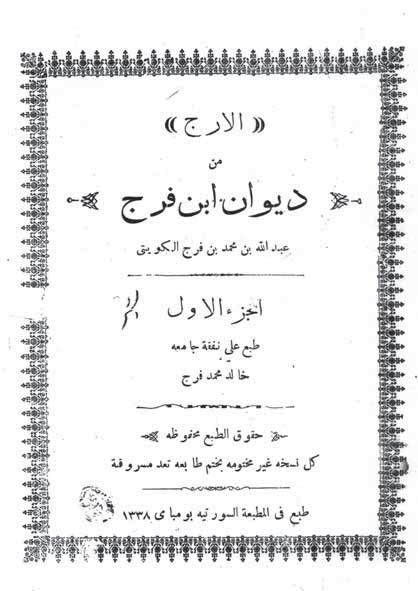 (( الارج ))
من
ديوان ابن فرج
عبد الله بن محمد بن فرج الكويتى
الجزء الاول
طبع على نفقة جامعه
خالد محمد فرج
حقوق الطبع محفوظه
كل نسخه غير مختومه بختم طابعه تعد مسروقة
طبع فى المطبعة السورتيه بومباى ١٣٣٨